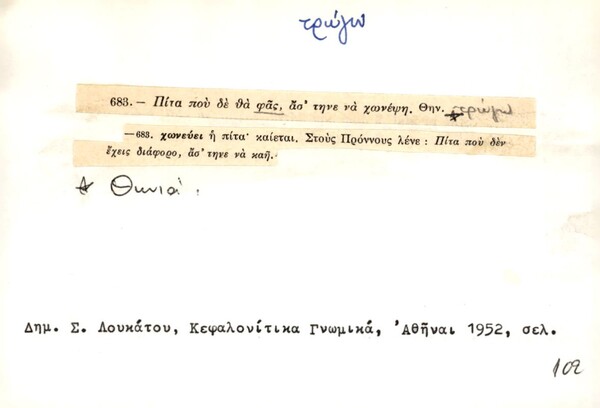 τρώγω
683. — Πίτα ποὺ δὲ θὰ φᾶς, ἄσ' τηνε νὰ χωνέψῃ. Θην. * τρώγω
—683. χωνεύει ἡ πίτα· καίεται. Στοὺς Πρόννους λένε : Πίτα ποὺ δὲν
ἔχεις διάφορο, ἄσ' τηνε νὰ καῇ.
* Θηνιά.
Δημ. Σ. Λουκάτου, Κεφαλονίτικα Γνωμικά, Ἀθῆναι 1952, σελ.
102